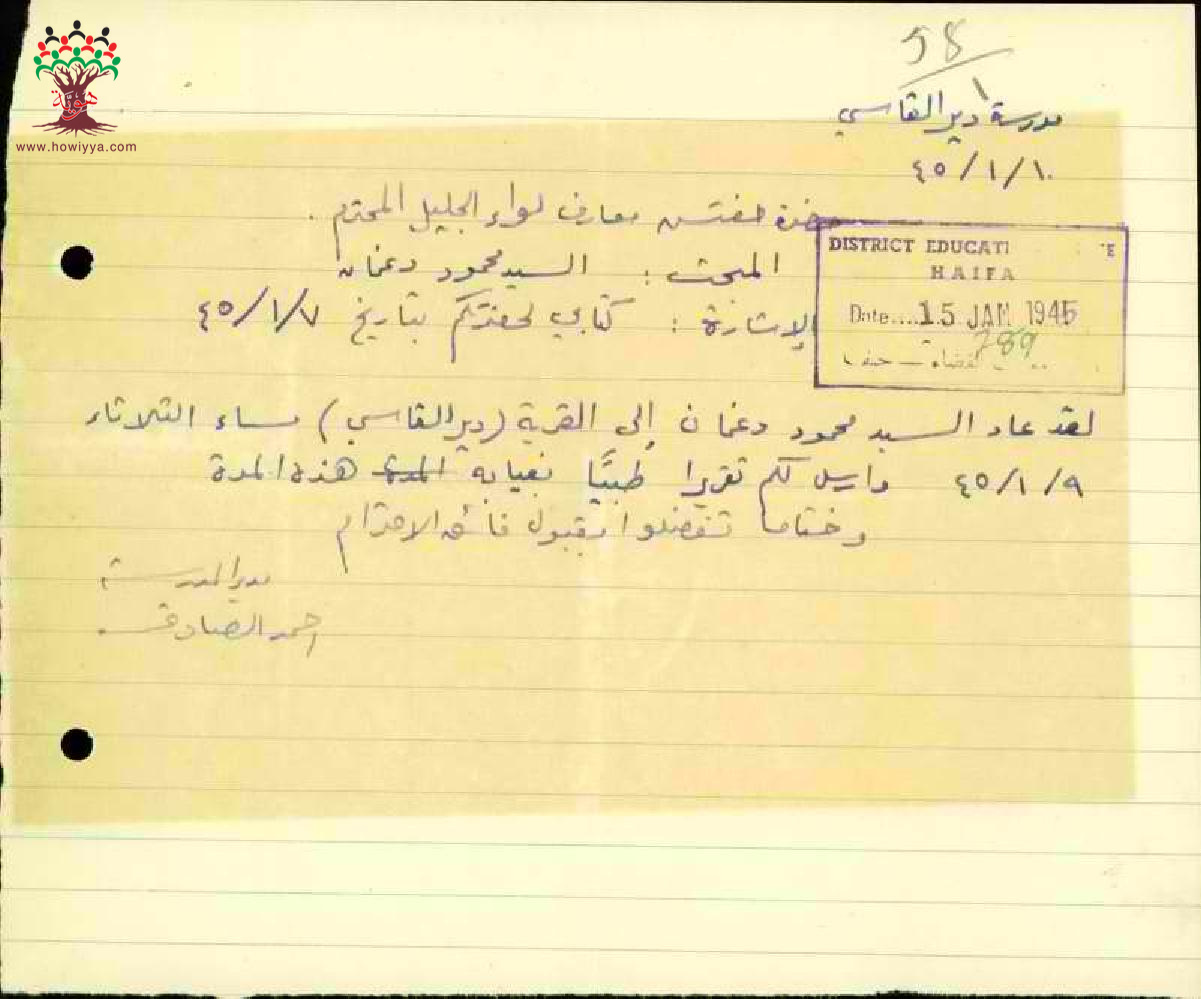 58
١
مدرسة دير القاسي
٤٥/١/١٠
حضرة مفتش معارف لواء الجليل المحترم .
المبحث : السيد محمود دغمان
الإشارة : كتابي لحضرتكم بتاريخ ٤٥/١/٧
DISTRICT EDUCATI E
HAIFA
Date....15 JAN 1945
789
القضاء — حيفا
لقد عاد السيد محمود دغمان إلى القرية (دير القاسي) مساء الثلاثاء
٤٥/١/٩ وارسل لكم تقريرا طبيًا بغيابه المدة هذه المدة
وختاما تفضلوا بقبول فائق الاحترام
مدير المدرسة
احمد الصادق
هوية
www.howiyya.com